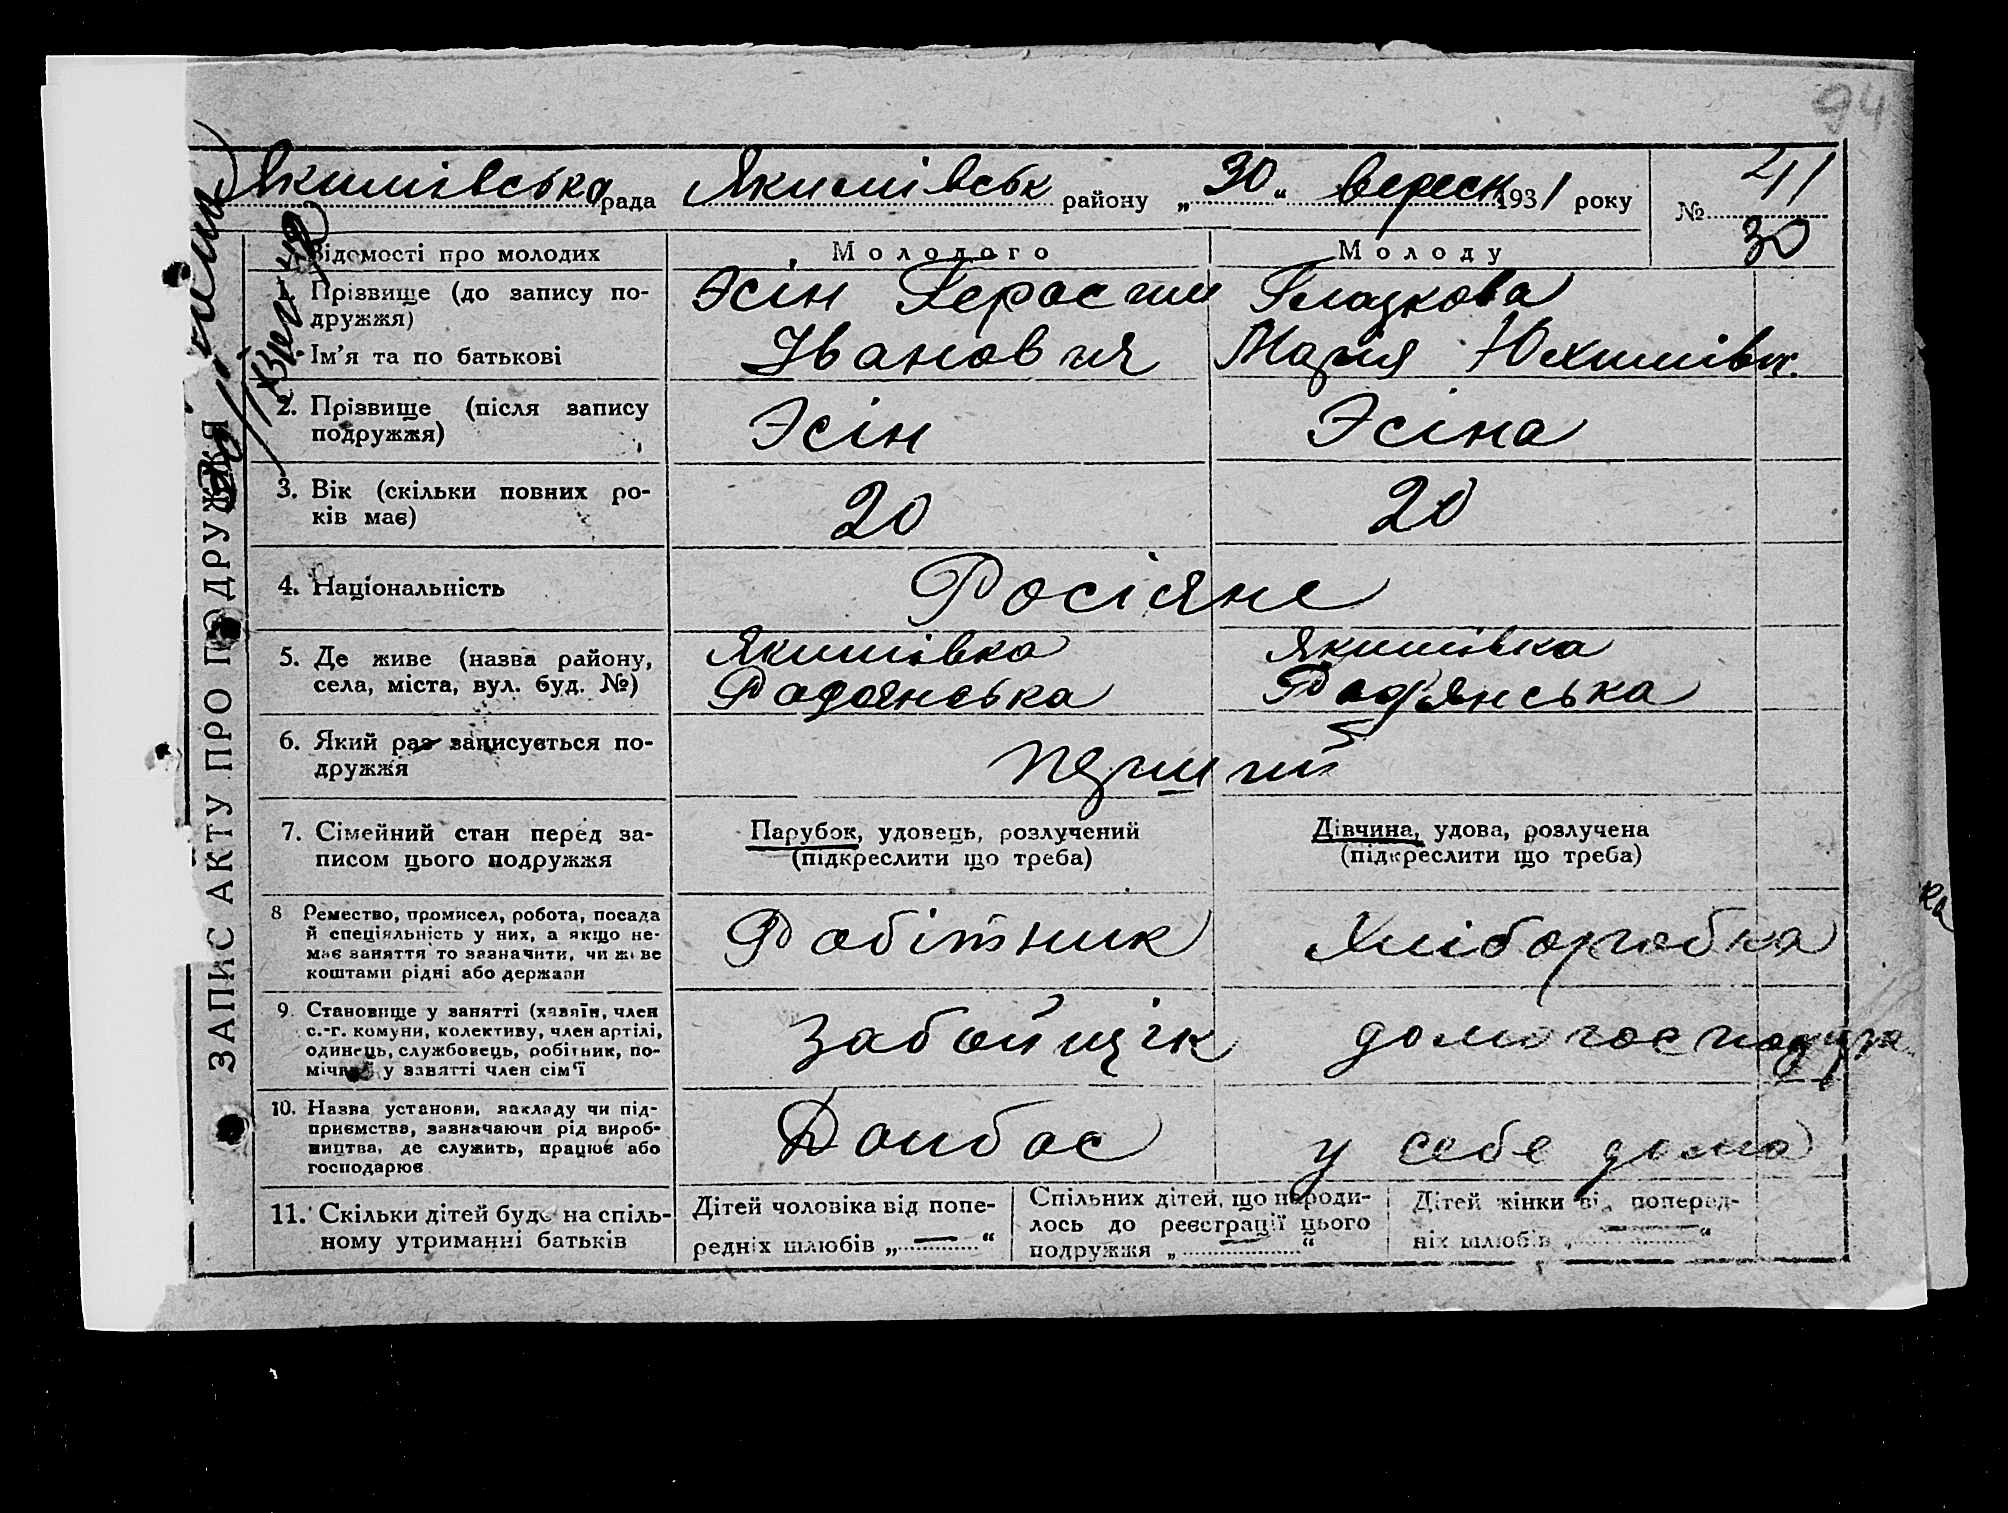 94
Якимівська рада Якимівськ району „30“ вересн 1931 року № 41
30
ЗАПИС АКТУ ПРО ПОДРУЖЖЯ
Відомості про молодих
Молодого
Молоду
1. Прізвище (до запису по-
дружжя)
Ім’я та по батькові
Эсін Герасим
Іванович
Глазкова
Марія Юхимівн.
2. Прізвище (після запису
подружжя)
Эсін
Эсіна
3. Вік (скільки повних ро-
ків має)
20
20
4. Національність
Росіяне
5. Де живе (назва району,
села, міста, вул. буд. №)
Якимівка
Радянська
Якимівка
Радянська
6. Який раз записується по-
дружжя
перший
7. Сімейний стан перед за-
писом цього подружжя
Парубок, удовець, розлучений
(підкреслити що треба)
Дівчина, удова, розлучена
(підкреслити що треба)
8 Ремество, промисел, робота, посада
й спеціяльність у них, а якщо не-
має заняття то зазначити, чи живе
коштами рідні або держави
Робітник
Хліборобка
9. Становище у занятті (хазяїн, член
с.-г. комуни, колективу, член артілі,
одинець, службовець, робітник, по-
мічний у занятті член сім’ї
Забойщік
домогосподарка
10. Назва установи, закладу чи під-
приємства, зазначаючи рід вироб-
ництва, де служить, працює або
господарює
Донбас
у себе дома
11. Скільки дітей буде на спіль-
ному утриманні батьків
Дітей чоловіка від попе-
редніх шлюбів „ — “
Спільних дітей, що народи-
лось до реєстрації цього
подружжя „ — “
Дітей жінки від поперед-
ніх шлюбів „ — “
ка